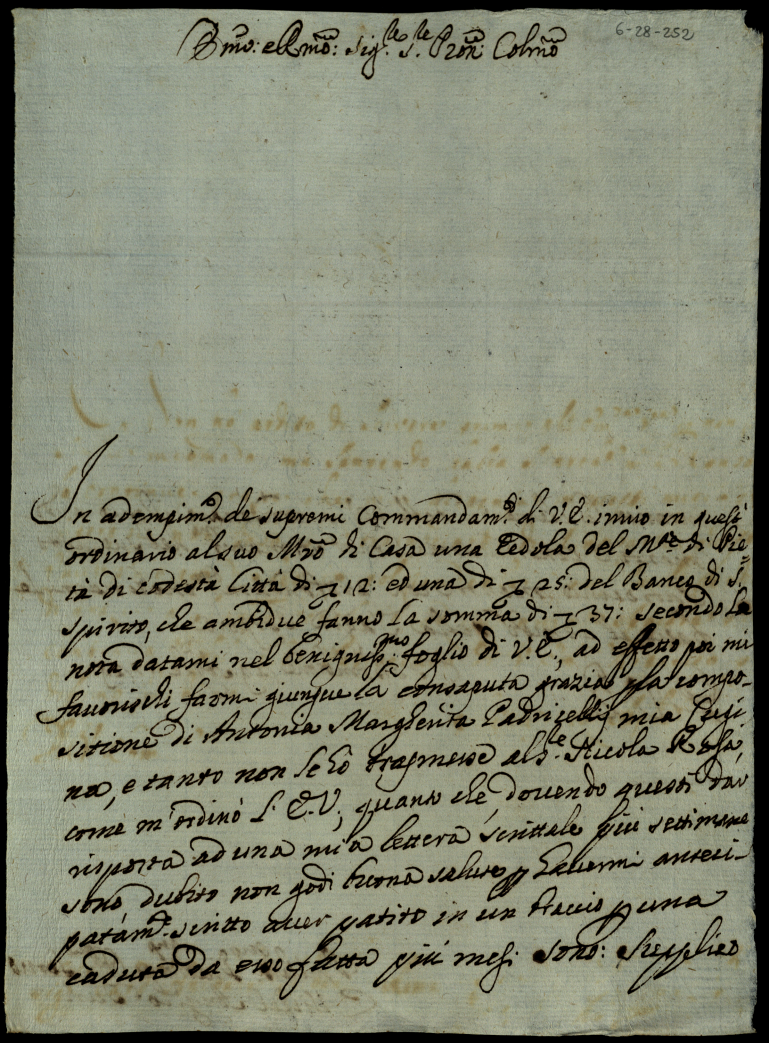 6-28-252
Emo: e Rmo: Sig.re S.re Pron: Colmo
In adempim.to de supremi Commandam.ti di V.E. invio in quest'
ordinario al suo Mro di Casa una Cedola del M.te di Pie=
tà di codesta Città di 12: ed una di 25: del Banco di S.
Spirito, che ambidue fanno la somma di 37: secondo la
nota datami nel benigniss.mo foglio di V.E., ad effetto poi mi
favorischi farmi giungere la consaputa grazia p la compo-
sitione di Antonia Margherita Padricelli mia Cugi
na, e tanto non le hò trasmesse al S.e Nicola Rosa,
come m'ordinò l'E.V., quanto che, dovendo questi dar
risposta ad una mia lettera scrittale più settimane
sono dubito non godi buona salute p havermi anteci-
patam.te scritto aver patito in un braccio p una
caduta da esso fatta più mesi sono: Supplico